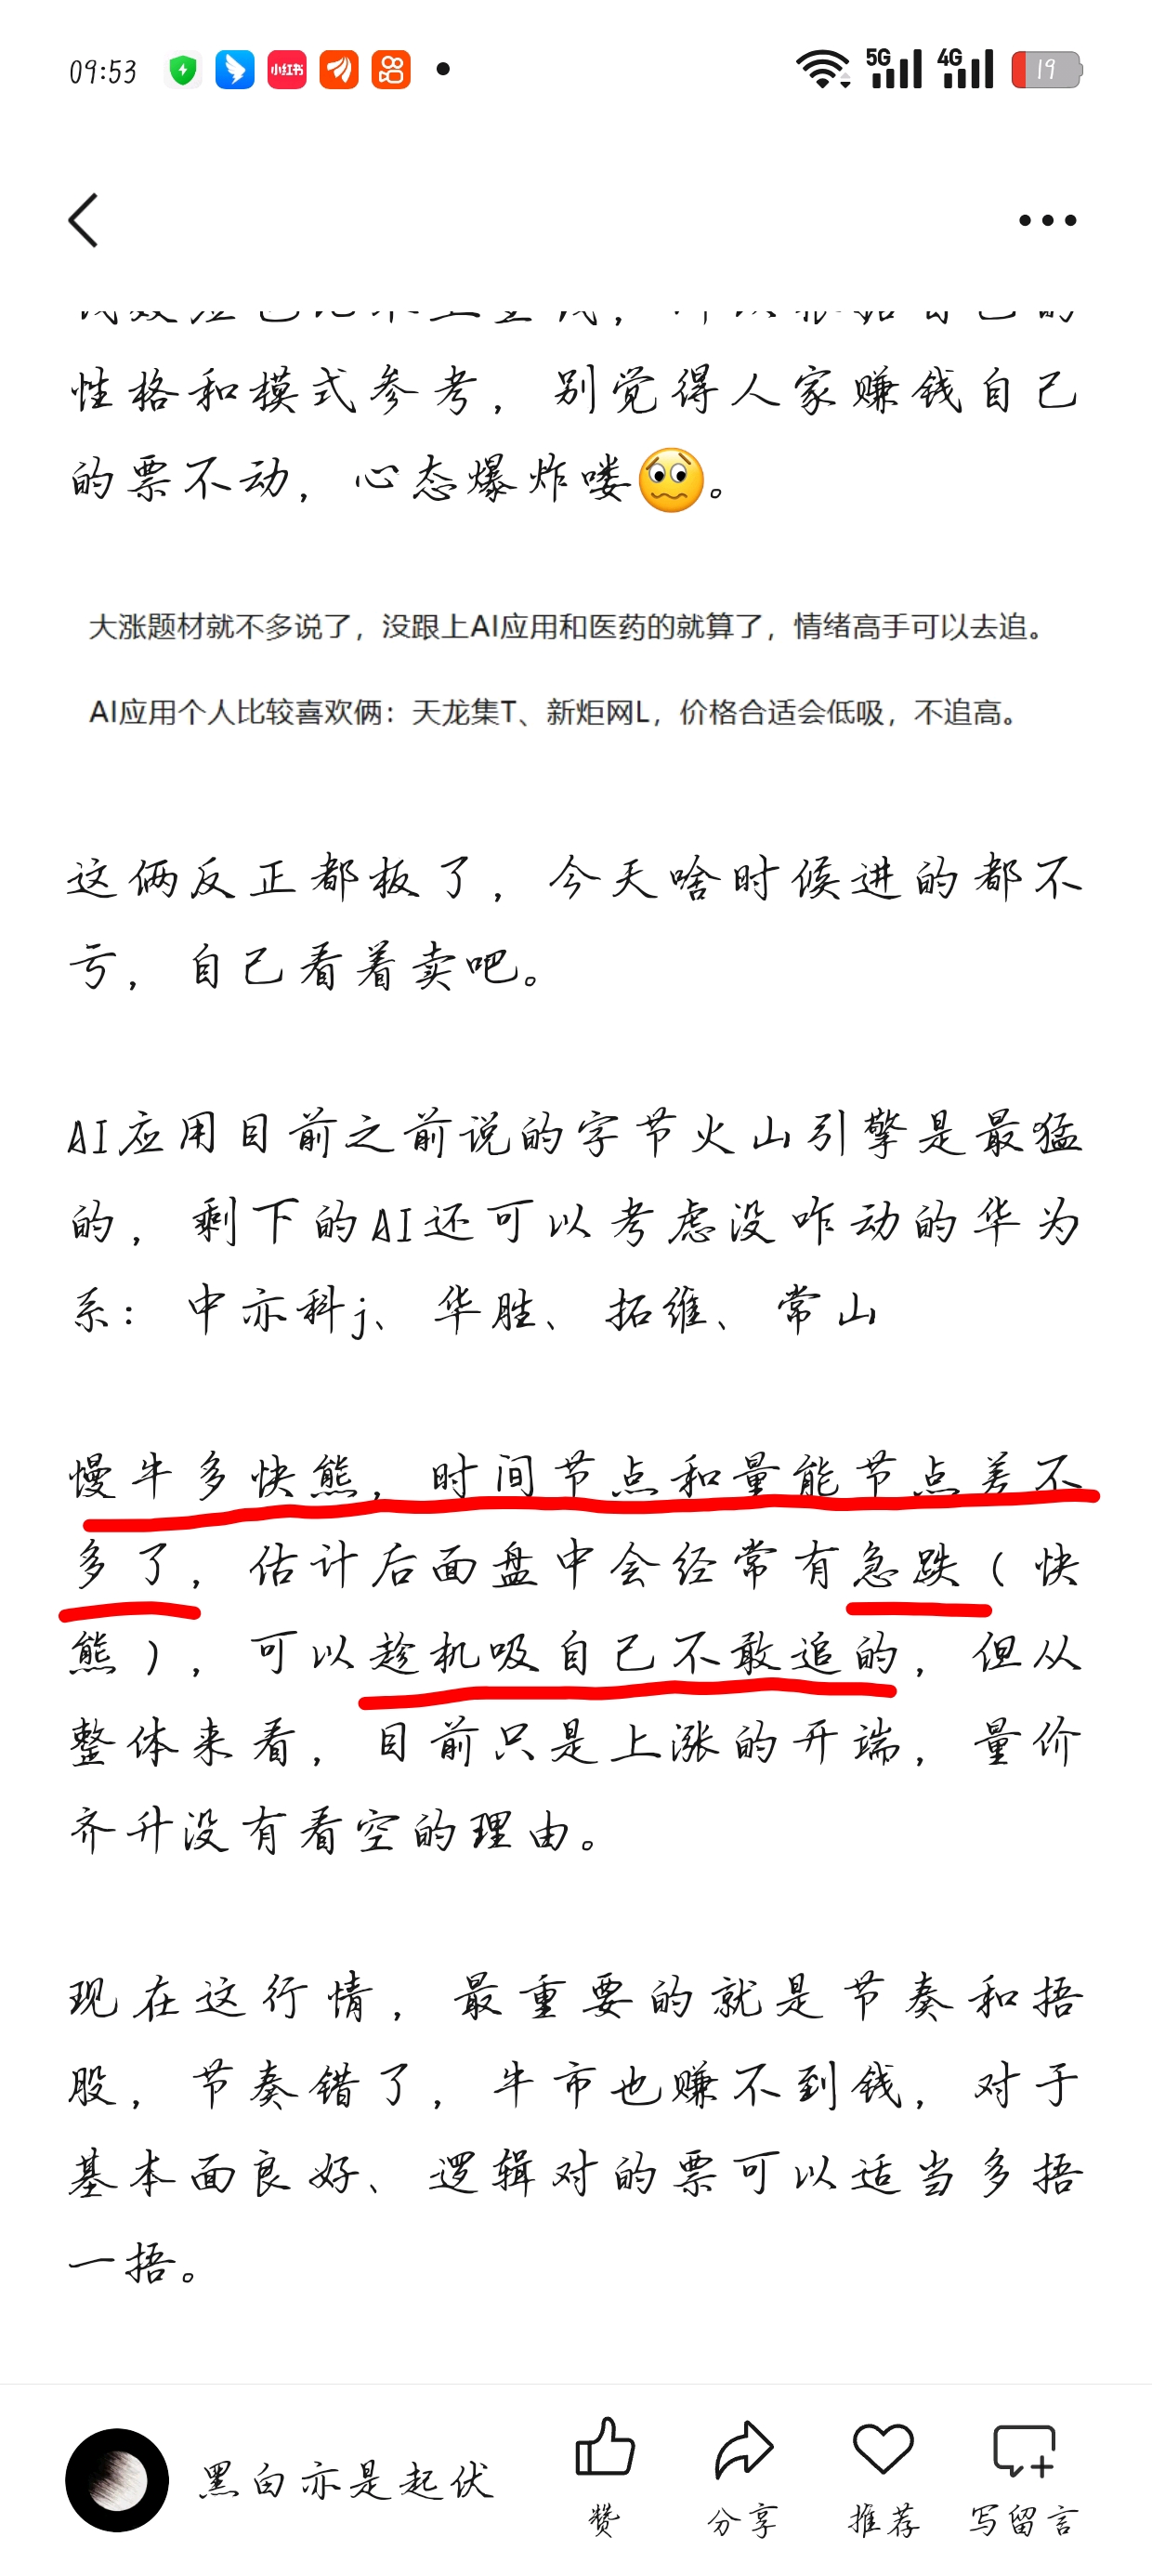 09:53
小红书
5G
4G
19
性格和模式参考，别觉得人家赚钱自己
的票不动，心态爆炸喽🥴。
大涨题材就不多说了，没跟上AI应用和医药的就算了，情绪高手可以去追。
AI应用个人比较喜欢俩：天龙集T、新炬网L，价格合适会低吸，不追高。
这俩反正都板了，今天啥时候进的都不
亏，自己看着卖吧。
AI应用目前之前说的字节火山引擎是最猛
的，剩下的AI还可以考虑没咋动的华为
系：中亦科j、华胜、拓维、常山
慢牛多快熊，时间节点和量能节点差不
多了，估计后面盘中会经常有急跌（快
熊），可以趁机吸自己不敢追的，但从
整体来看，目前只是上涨的开端，量价
齐升没有看空的理由。
现在这行情，最重要的就是节奏和捂
股，节奏错了，牛市也赚不到钱，对于
基本面良好、逻辑对的票可以适当多捂
一捂。
黑白亦是起伏
赞
分享
推荐
写留言